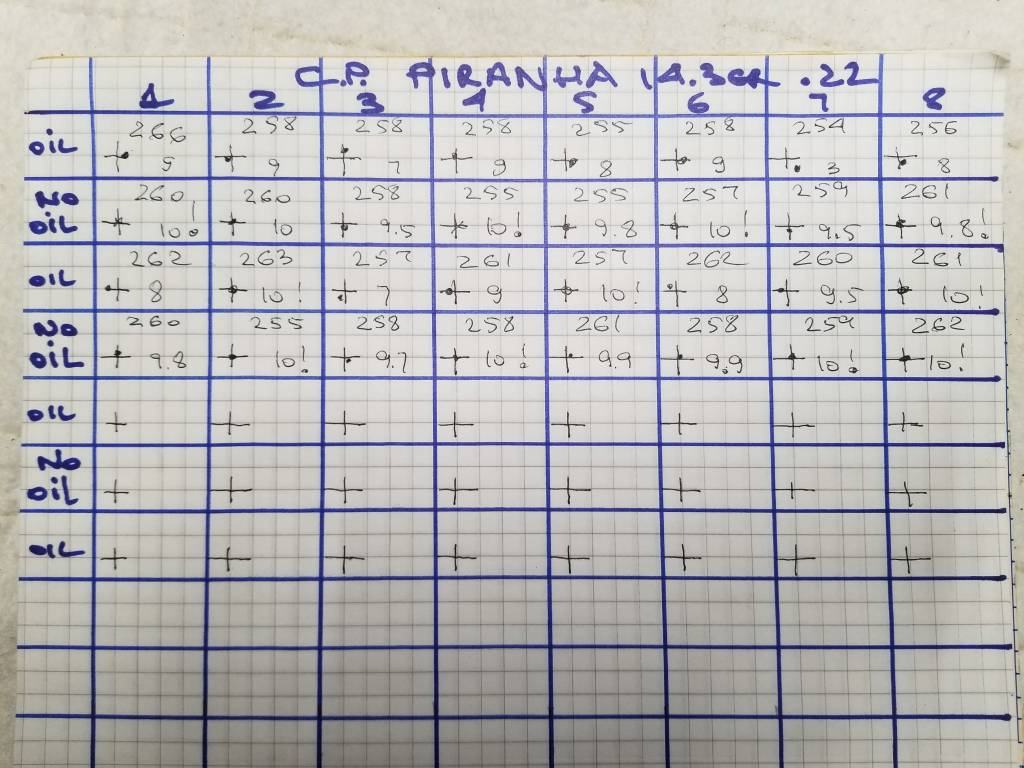 C.P. PIRANHA 14.3GR .22
1 2 3 4 5 6 7 8
OIL 266 258 258 258 255 258 254 256
5 9 7 9 8 9 3 8
NO 260 260 258 255 255 257 259 261
OIL 10! 10 9.5 10! 9.8 10! 9.5 9.8!
OIL 262 263 257 261 257 262 260 261
8 10! 7 9 10! 8 9.5 10!
NO 260 255 258 258 261 258 259 262
OIL 9.8 10! 9.7 10! 9.9 9.9 10! 10!
OIL
NO
OIL
OIL